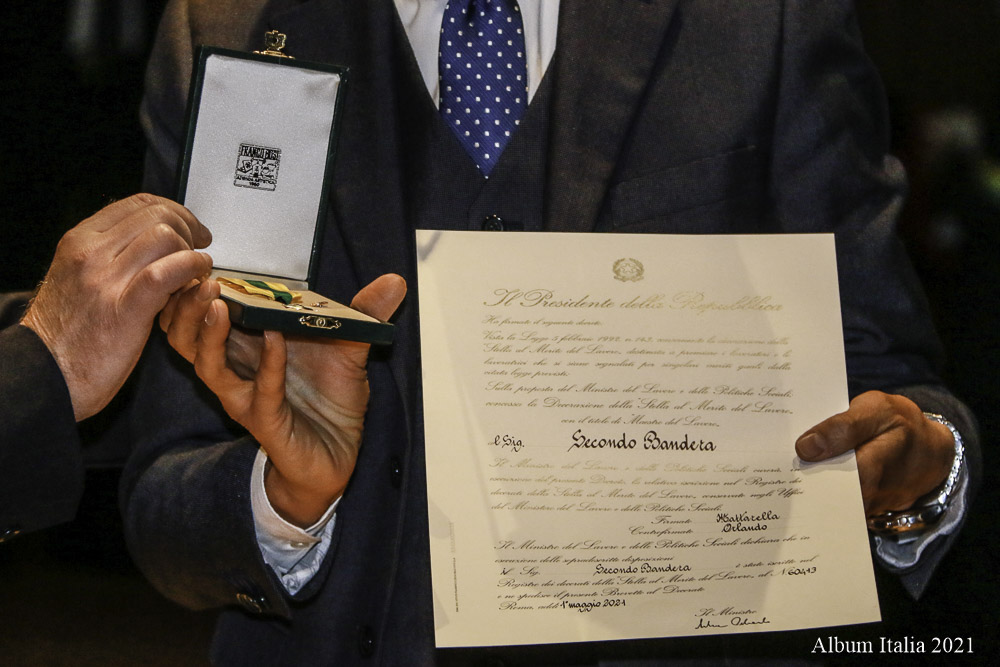 FRANCO
1960
Il Presidente della Repubblica
Ha firmato il seguente decreto:
Vista la Legge 5 febbraio 1992 n. 143, la decorazione della
Stella al Merito del Lavoro, destinata a premiare i lavoratori e le
lavoratrici che si siano segnalati per singolari meriti quali dalla
citata legge previsti.
Sulla proposta del Ministro del Lavoro e delle Politiche Sociali,
concessa la Decorazione della Stella al Merito del Lavoro,
con il titolo di Maestro del Lavoro,
al Sig. Secondo Bandera
Il Ministro del Lavoro e delle Politiche Sociali curerà in
esecuzione del presente Decreto, la relativa iscrizione nel Registro dei
decorati della Stella al Merito del Lavoro, conservato negli Uffici
del Ministero del Lavoro e delle Politiche Sociali.
Firmato Mattarella
Controfirmato Orlando
Il Ministro del Lavoro e delle Politiche Sociali dichiara che in
esecuzione delle sopradescritte disposizioni
il Sig. Secondo Bandera è stato iscritto nel
Registro dei decorati della Stella al Merito del Lavoro, al N° 60413
e no spedisce il presente Brevetto al Decorato
Roma, addì 1° maggio 2021
Il Ministro
Album Italia 2021